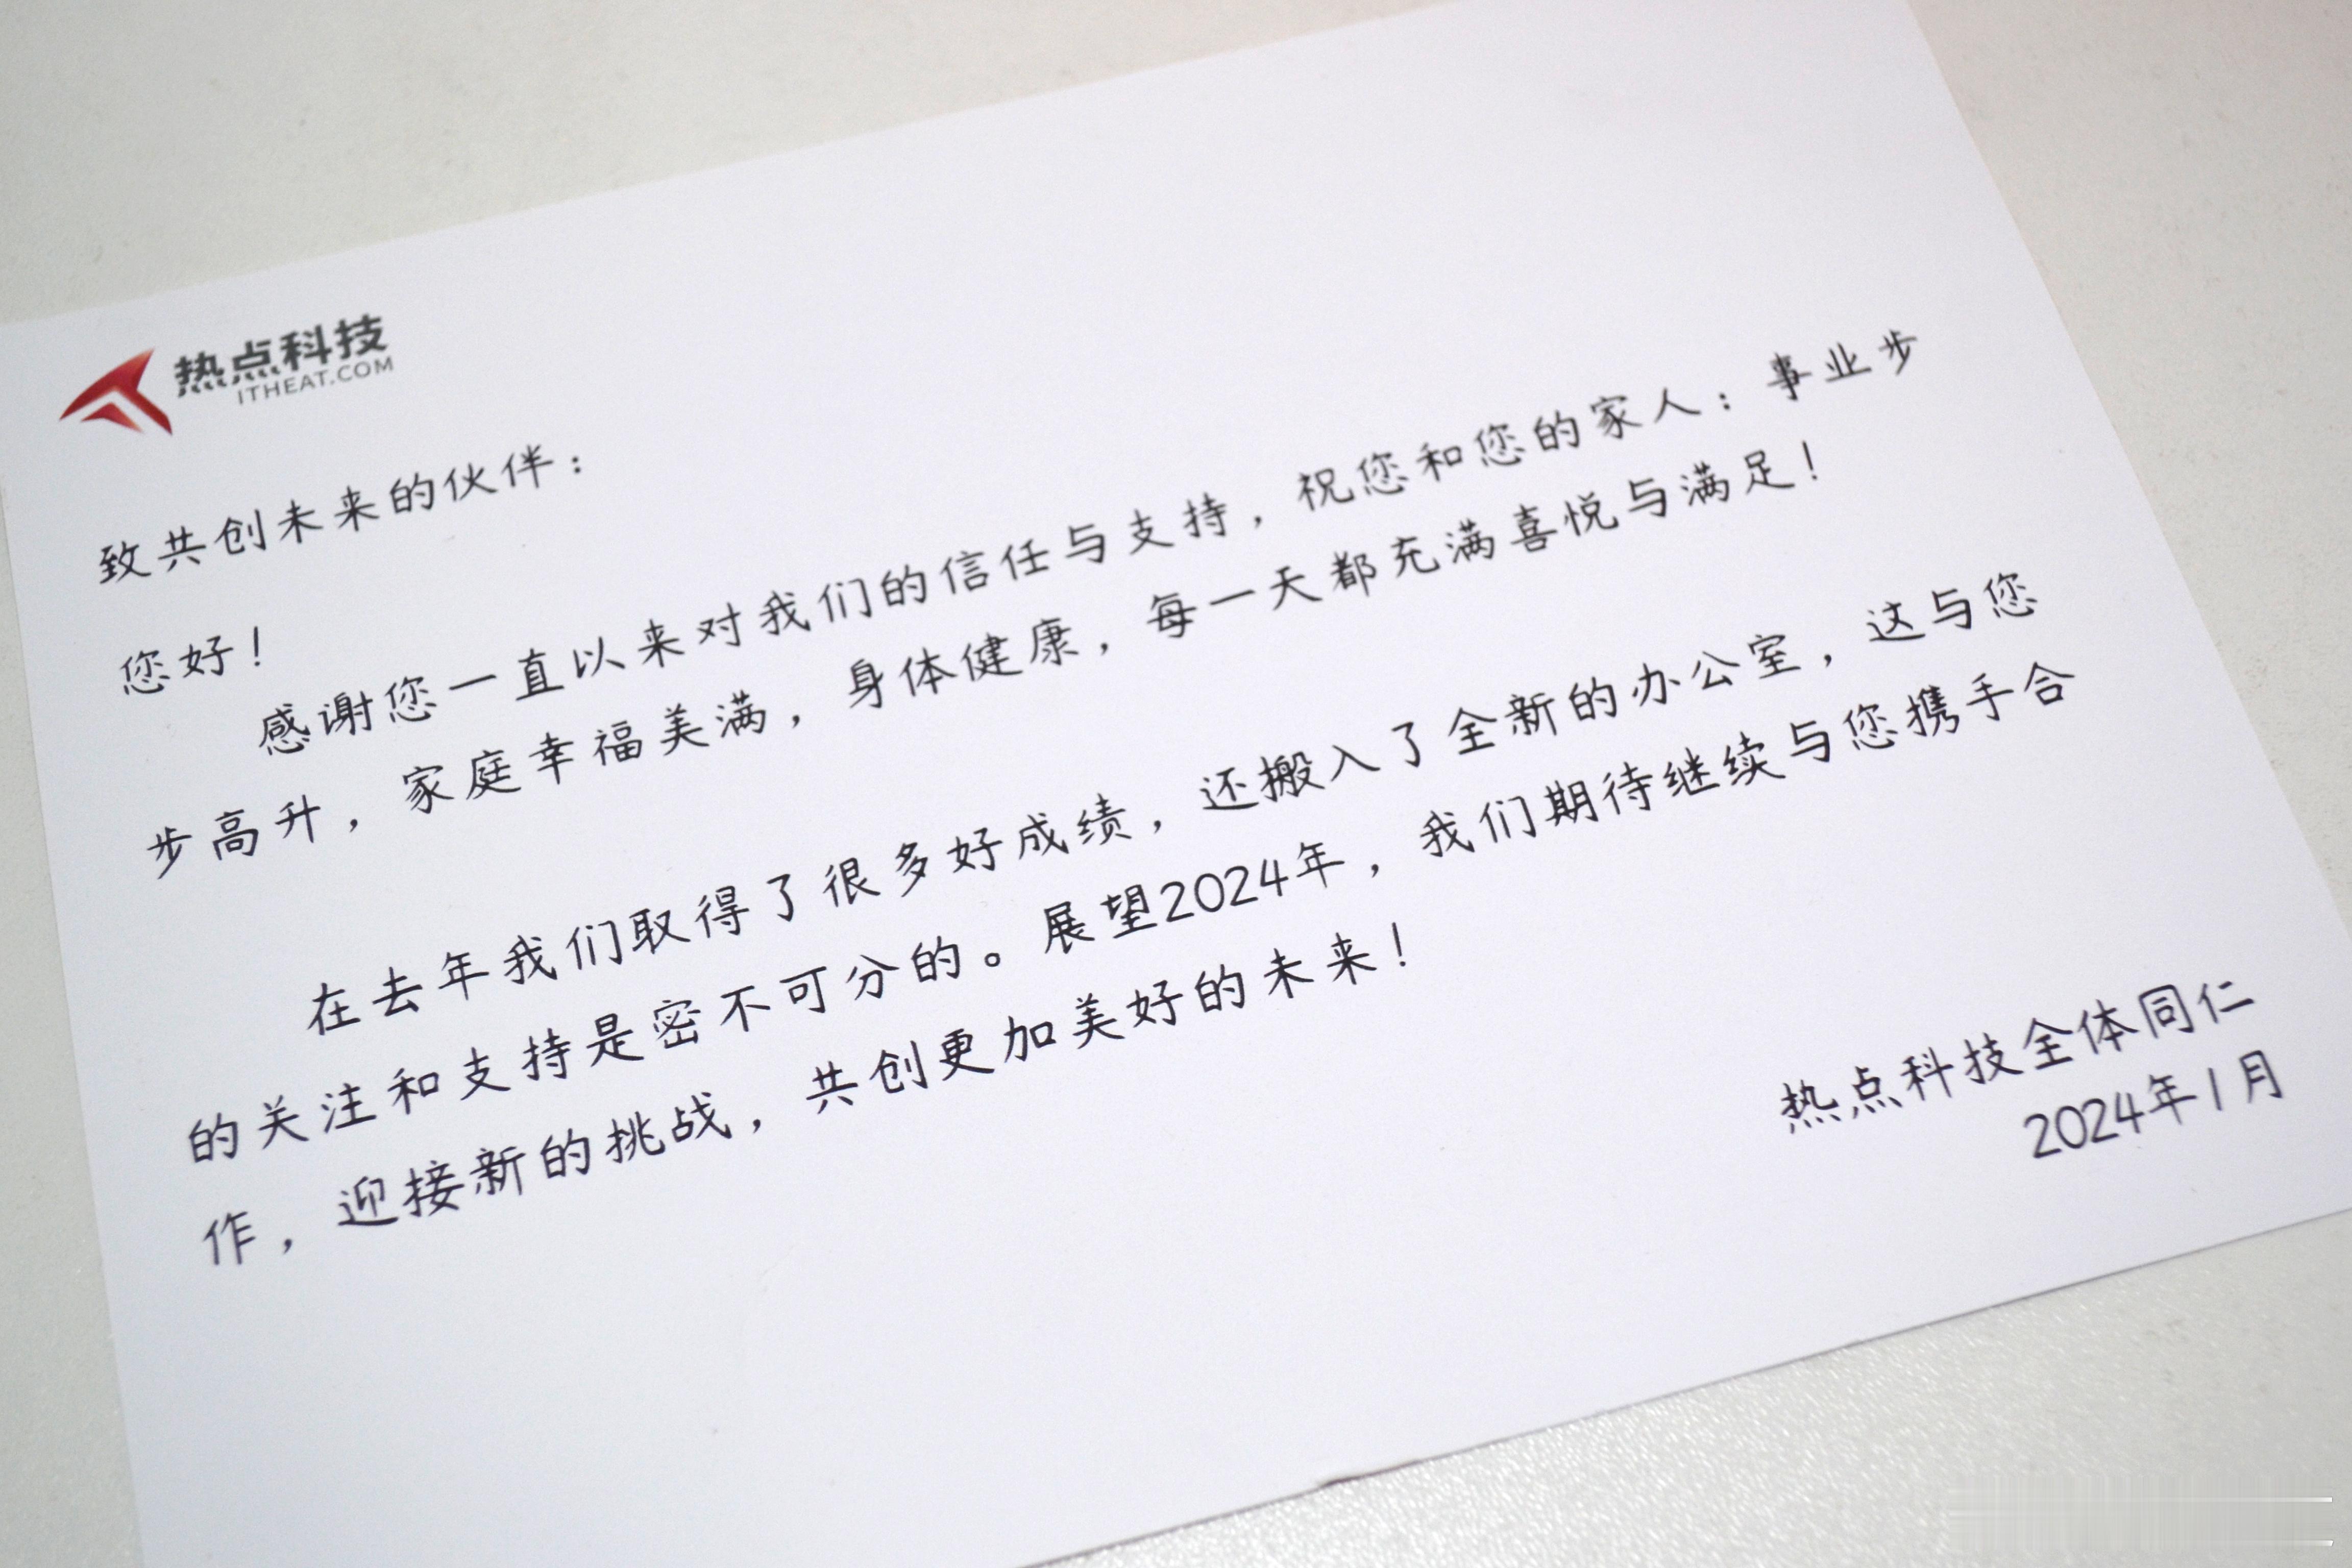 热点科技
ITHEAT.COM
致共创未来的伙伴：
您好！
感谢您一直以来对我们的信任与支持，祝您和您的家人：事业步
步高升，家庭幸福美满，身体健康，每一天都充满喜悦与满足！
在去年我们取得了很多好成绩，还搬入了全新的办公室，这与您
的关注和支持是密不可分的。展望2024年，我们期待继续与您携手合
作，迎接新的挑战，共创更加美好的未来！
热点科技全体同仁
2024年1月